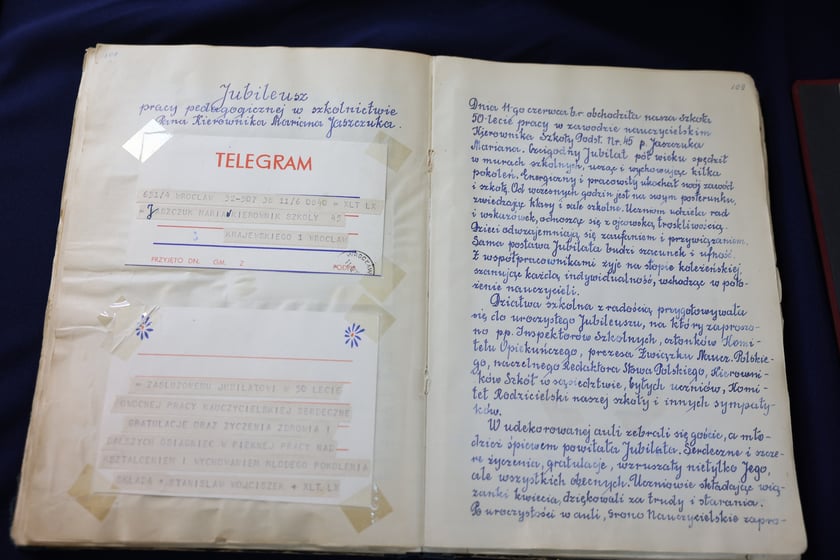 108
Jubileusz
pracy pedagogicznej w szkolnictwie
Pana Kierownika Mariana Jaszczuka.
TELEGRAM
651/9 WROCLAW 52-507 38 11/6 0840 = XLT LX
= JASZCZUK MARIAN KIEROWNIK SZKOLY 45
KRAJEWSKIEGO 1 WROCLAW
PRZYJĘTO DN. GM. Z
= ZASLUZONEMU JUBILATOWI W 50 LECIE
OWOCNEJ PRACY NAUCZYCIELSKIEJ SERDECZNE
GRATULACJE ORAZ ZYCZENIA ZDROWIA I
DALSZYCH OSIAGNIEC W PIEKNEJ PRACY NAD
KSZTALCENIEM I WYCHOWANIEM MLODEGO POKOLENIA
SKLADA = STANISLAW WOJCISZEK + XLT LX
109
Dnia 11-go czerwca b.r. obchodziła nasza szkoła
50-lecie pracy w zawodzie nauczycielskim
Kierownika Szkoły Podst. Nr. 45 p. Jaszczuka
Mariana. Czcigodny Jubilat pół wieku spędził
w murach szkolnych, ucząc i wychowując kilka
pokoleń. Energiczny i pracowity ukochał swój zawód
i szkołę. Od wczesnych godzin jest na swym posterunku,
zwiedzając klasy i sale szkolne. Uczniom udziela rad
i wskazówek, odnosząc się z ojcowską troskliwością.
Dzieci odwzajemniają się zaufaniem i przywiązaniem.
Sama postawa Jubilata budzi szacunek i ufność.
Z współpracownikami żyje na stopie koleżeńskiej,
szanując każdą indywidualność, wchodząc w poło-
żenie nauczycieli.
Dziatwa szkolna z radością przygotowywała
się do uroczystego Jubileuszu, na który zaproszo-
no pp. Inspektorów Szkolnych, członków Komi-
tetu Opiekuńczego, prezesa Związku Naucz. Polskie-
go, naczelnego Redaktora Słowa Polskiego, Kierowni-
ków Szkół w sąsiedztwie, byłych uczniów, Komi-
tet Rodzicielski naszej szkoły i innych sympaty-
ków.
W udekorowanej auli zebrali się goście, a mło-
dzież śpiewem powitała Jubilata. Serdeczne i szcze-
re życzenia, gratulacje, wzruszały nietylko Jego,
ale wszystkich obecnych. Uczniowie składając wią-
zanki kwiecia, dziękowali za trudy i starania.
Po uroczystości w auli, Grono Nauczycielskie zapro-